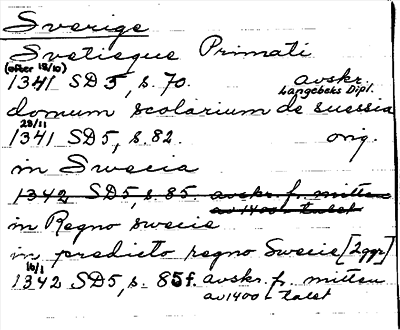 Sverige
Svetieque Primati
(efter 18/10)
1341 SD5, s. 70. avskr.
Langebeks Dipl.
domum scolarium de suessia
23/11
1341 SD5, s. 82. orig.
in Swecia
1342 SD5, s. 85 avskr. f. mitten
av 1400-talet
in Regno swecie
in predicto regno Swecie [2 ggr]
16/1
1342 SD5, s. 85 f. avskr. f. mitten
av 1400-talet